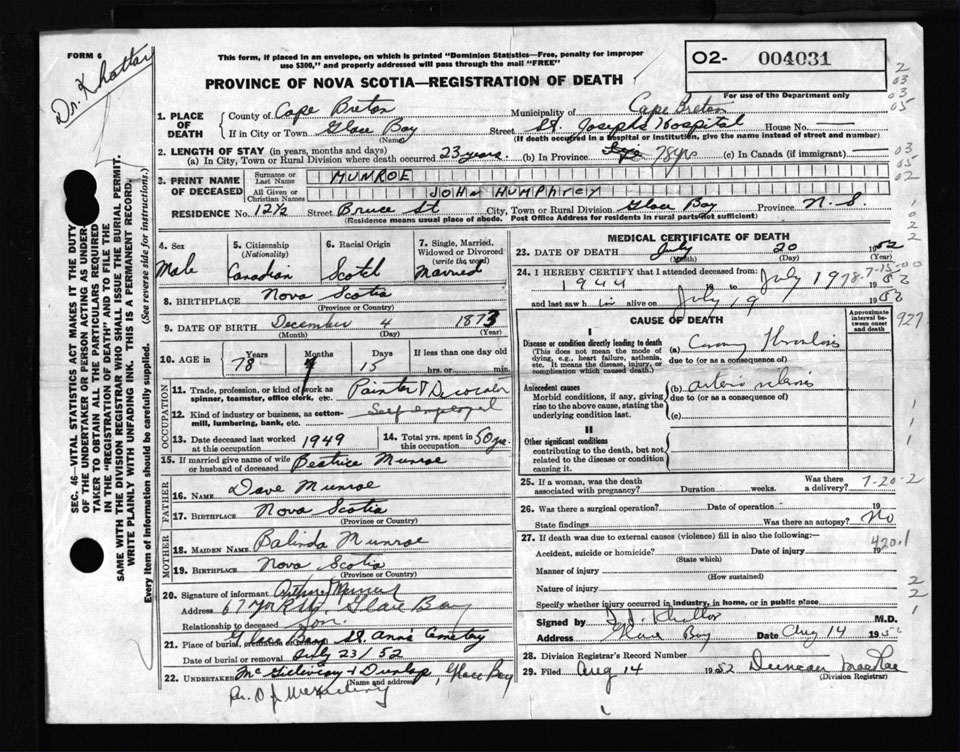 FORM 6
This form, if placed in an envelope, on which is printed "Dominion Statistics—Free, penalty for improper
use $300," and properly addressed will pass through the mail "FREE"
O2- 004031
For use of the Department only
Dr. Khattar
PROVINCE OF NOVA SCOTIA—REGISTRATION OF DEATH
1. PLACE OF DEATH
County of Cape Breton Municipality of Cape Breton
If in City or Town Glace Bay Street St. Josephs Hospital House No.
(Name) (If death occurred in a hospital or institution, give the name instead of street and number)
2. LENGTH OF STAY (in years, months and days)
(a) In City, Town or Rural Division where death occurred 23 years. (b) In Province 78 yrs (c) In Canada (if immigrant)
3. PRINT NAME OF DECEASED
Surname or Last Name MUNROE
All Given or Christian Names JOHN HUMPHREY
RESIDENCE No. 12½ Street Bruce St City, Town or Rural Division Glace Bay Province N.S.
(Residence means usual place of abode. Post Office Address for residents in rural parts not sufficient)
4. Sex Male
5. Citizenship (Nationality) Canadian
6. Racial Origin Scotch
7. Single, Married, Widowed or Divorced (write the word) Married
8. BIRTHPLACE Nova Scotia
(Province or Country)
9. DATE OF BIRTH December 4 1873
(Month) (Day) (Year)
10. AGE in Years Months Days If less than one day old
78 7 15 hrs. or min.
OCCUPATION
11. Trade, profession, or kind of work as spinner, teamster, office clerk, etc. Painter & Decorator
12. Kind of industry or business, as cotton-mill, lumbering, bank, etc. Self employed
13. Date deceased last worked at this occupation 1949
14. Total yrs. spent in this occupation 50 yrs.
15. If married give name of wife or husband of deceased Beatrice Munroe
FATHER
16. NAME Dave Munroe
17. BIRTHPLACE Nova Scotia
(Province or Country)
MOTHER
18. MAIDEN NAME Balinda Munroe
19. BIRTHPLACE Nova Scotia
(Province or Country)
20. Signature of informant
Address 67 York St, Glace Bay
Relationship to deceased Son.
21. Place of burial, cremation or removal Glace Bay St. Ann's Cemetery
Date of burial or removal July 23/52
22. UNDERTAKER McGillivray & Dunlap, Glace Bay
(Name and address)
MEDICAL CERTIFICATE OF DEATH
23. DATE OF DEATH July 20 1952
(Month) (Day) (Year)
24. I HEREBY CERTIFY that I attended deceased from:
1944 to July 19 1952
and last saw h im alive on July 19 1952
CAUSE OF DEATH
Approximate interval between onset and death
I
Disease or condition directly leading to death
(This does not mean the mode of dying, e.g., heart failure, asthenia, etc. It means the disease, injury, or complication which caused death.)
(a) Coronary Thrombosis
due to (or as a consequence of)
Antecedent causes
Morbid conditions, if any, giving rise to the above cause, stating the underlying condition last.
(b) arterio sclerosis
due to (or as a consequence of)
(c)
II
Other significant conditions
contributing to the death, but not related to the disease or condition causing it.
25. If a woman, was the death associated with pregnancy? Duration weeks. Was there a delivery?
7-20-2
26. Was there a surgical operation? Date of operation 19
State findings Was there an autopsy? No
27. If death was due to external causes (violence) fill in also the following:—
420.1
Accident, suicide or homicide? Date of injury 19
(State which)
Manner of injury
(How sustained)
Nature of injury
Specify whether injury occurred in industry, in home, or in public place
Signed by Khattar M.D.
Address Glace Bay Date Aug 14 1952
28. Division Registrar's Record Number
29. Filed Aug 14 1952 Duncan MacRae
(Division Registrar)
927
SEC. 46—VITAL STATISTICS ACT MAKES IT THE DUTY
OF THE UNDERTAKER OR PERSON ACTING AS UNDER-
TAKER TO OBTAIN ALL THE PARTICULARS REQUIRED
IN THE "REGISTRATION OF DEATH" AND TO FILE THE
SAME WITH THE DIVISION REGISTRAR WHO SHALL ISSUE THE BURIAL PERMIT.
WRITE PLAINLY WITH UNFADING INK. THIS IS A PERMANENT RECORD.
Every item of information should be carefully supplied. (See reverse side for instructions.)